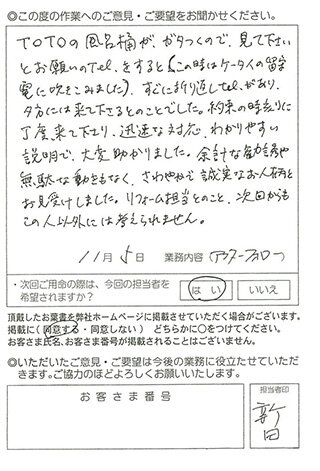 ◎この度の作業へのご意見・ご要望をお聞かせください。
TOTOの風呂桶がガタつくので、見て下さい
とお願いのTel.をすると(この時はケータイの留守
電に吹きこみました)、すぐに折り返しtelがあり、
夕方には来て下さるとのことでした。約束の時刻りに
丁度来て下さり、迅速な対応、わかりやすい
説明で、大変助かりました。余計な勧誘や
無駄な動きもなく、さわやかで誠実なお人柄と
お見受けしました。リフォーム担当とのこと、次回からも
この人以外には考えられません。
11月5日 業務内容(アフターフォロー)
・次回ご用命の際は、今回の担当者を
希望されますか?
はい
いいえ
頂戴したお葉書を弊社ホームページに掲載させていただく場合がございます。
掲載に(同意する・同意しない) どちらかに○をつけてください。
お客さま氏名、お客さま番号が掲載されることはございません。
◎いただいたご意見・ご要望は今後の業務に役立たせていただ
きます。ご協力のほどよろしくお願いいたします。
お客さま番号
担当者印
新田